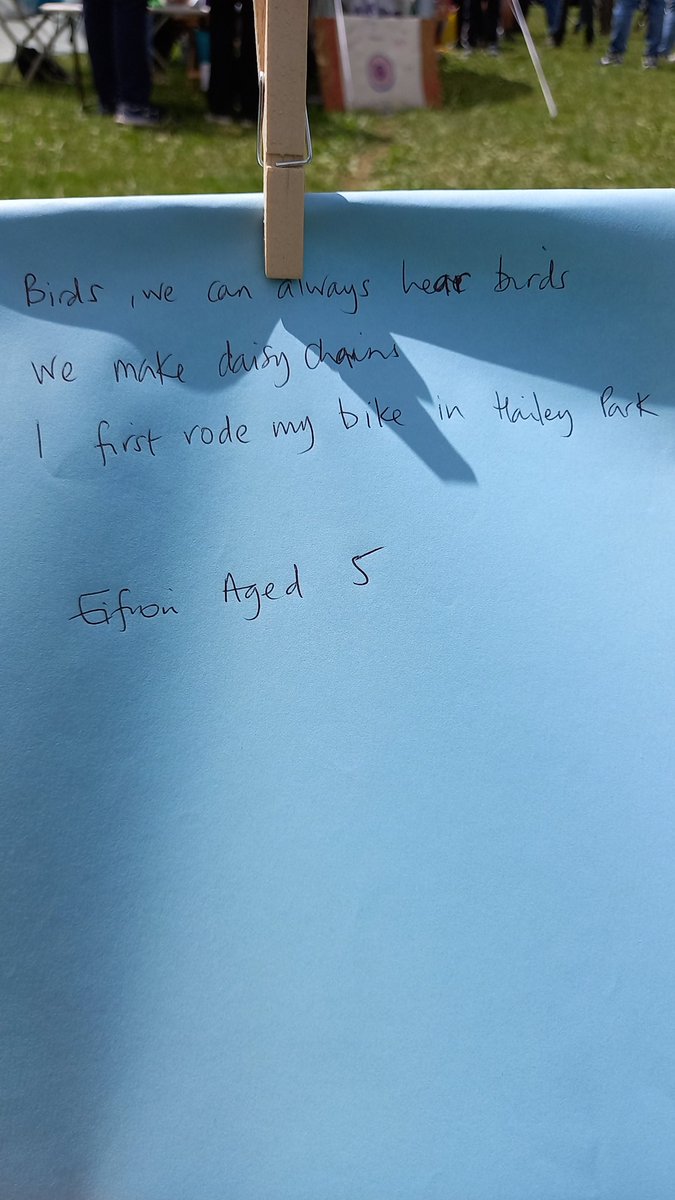 Birds, we can always hear birds
we make daisy chains
I first rode my bike in Hailey Park
Eifion Aged 5